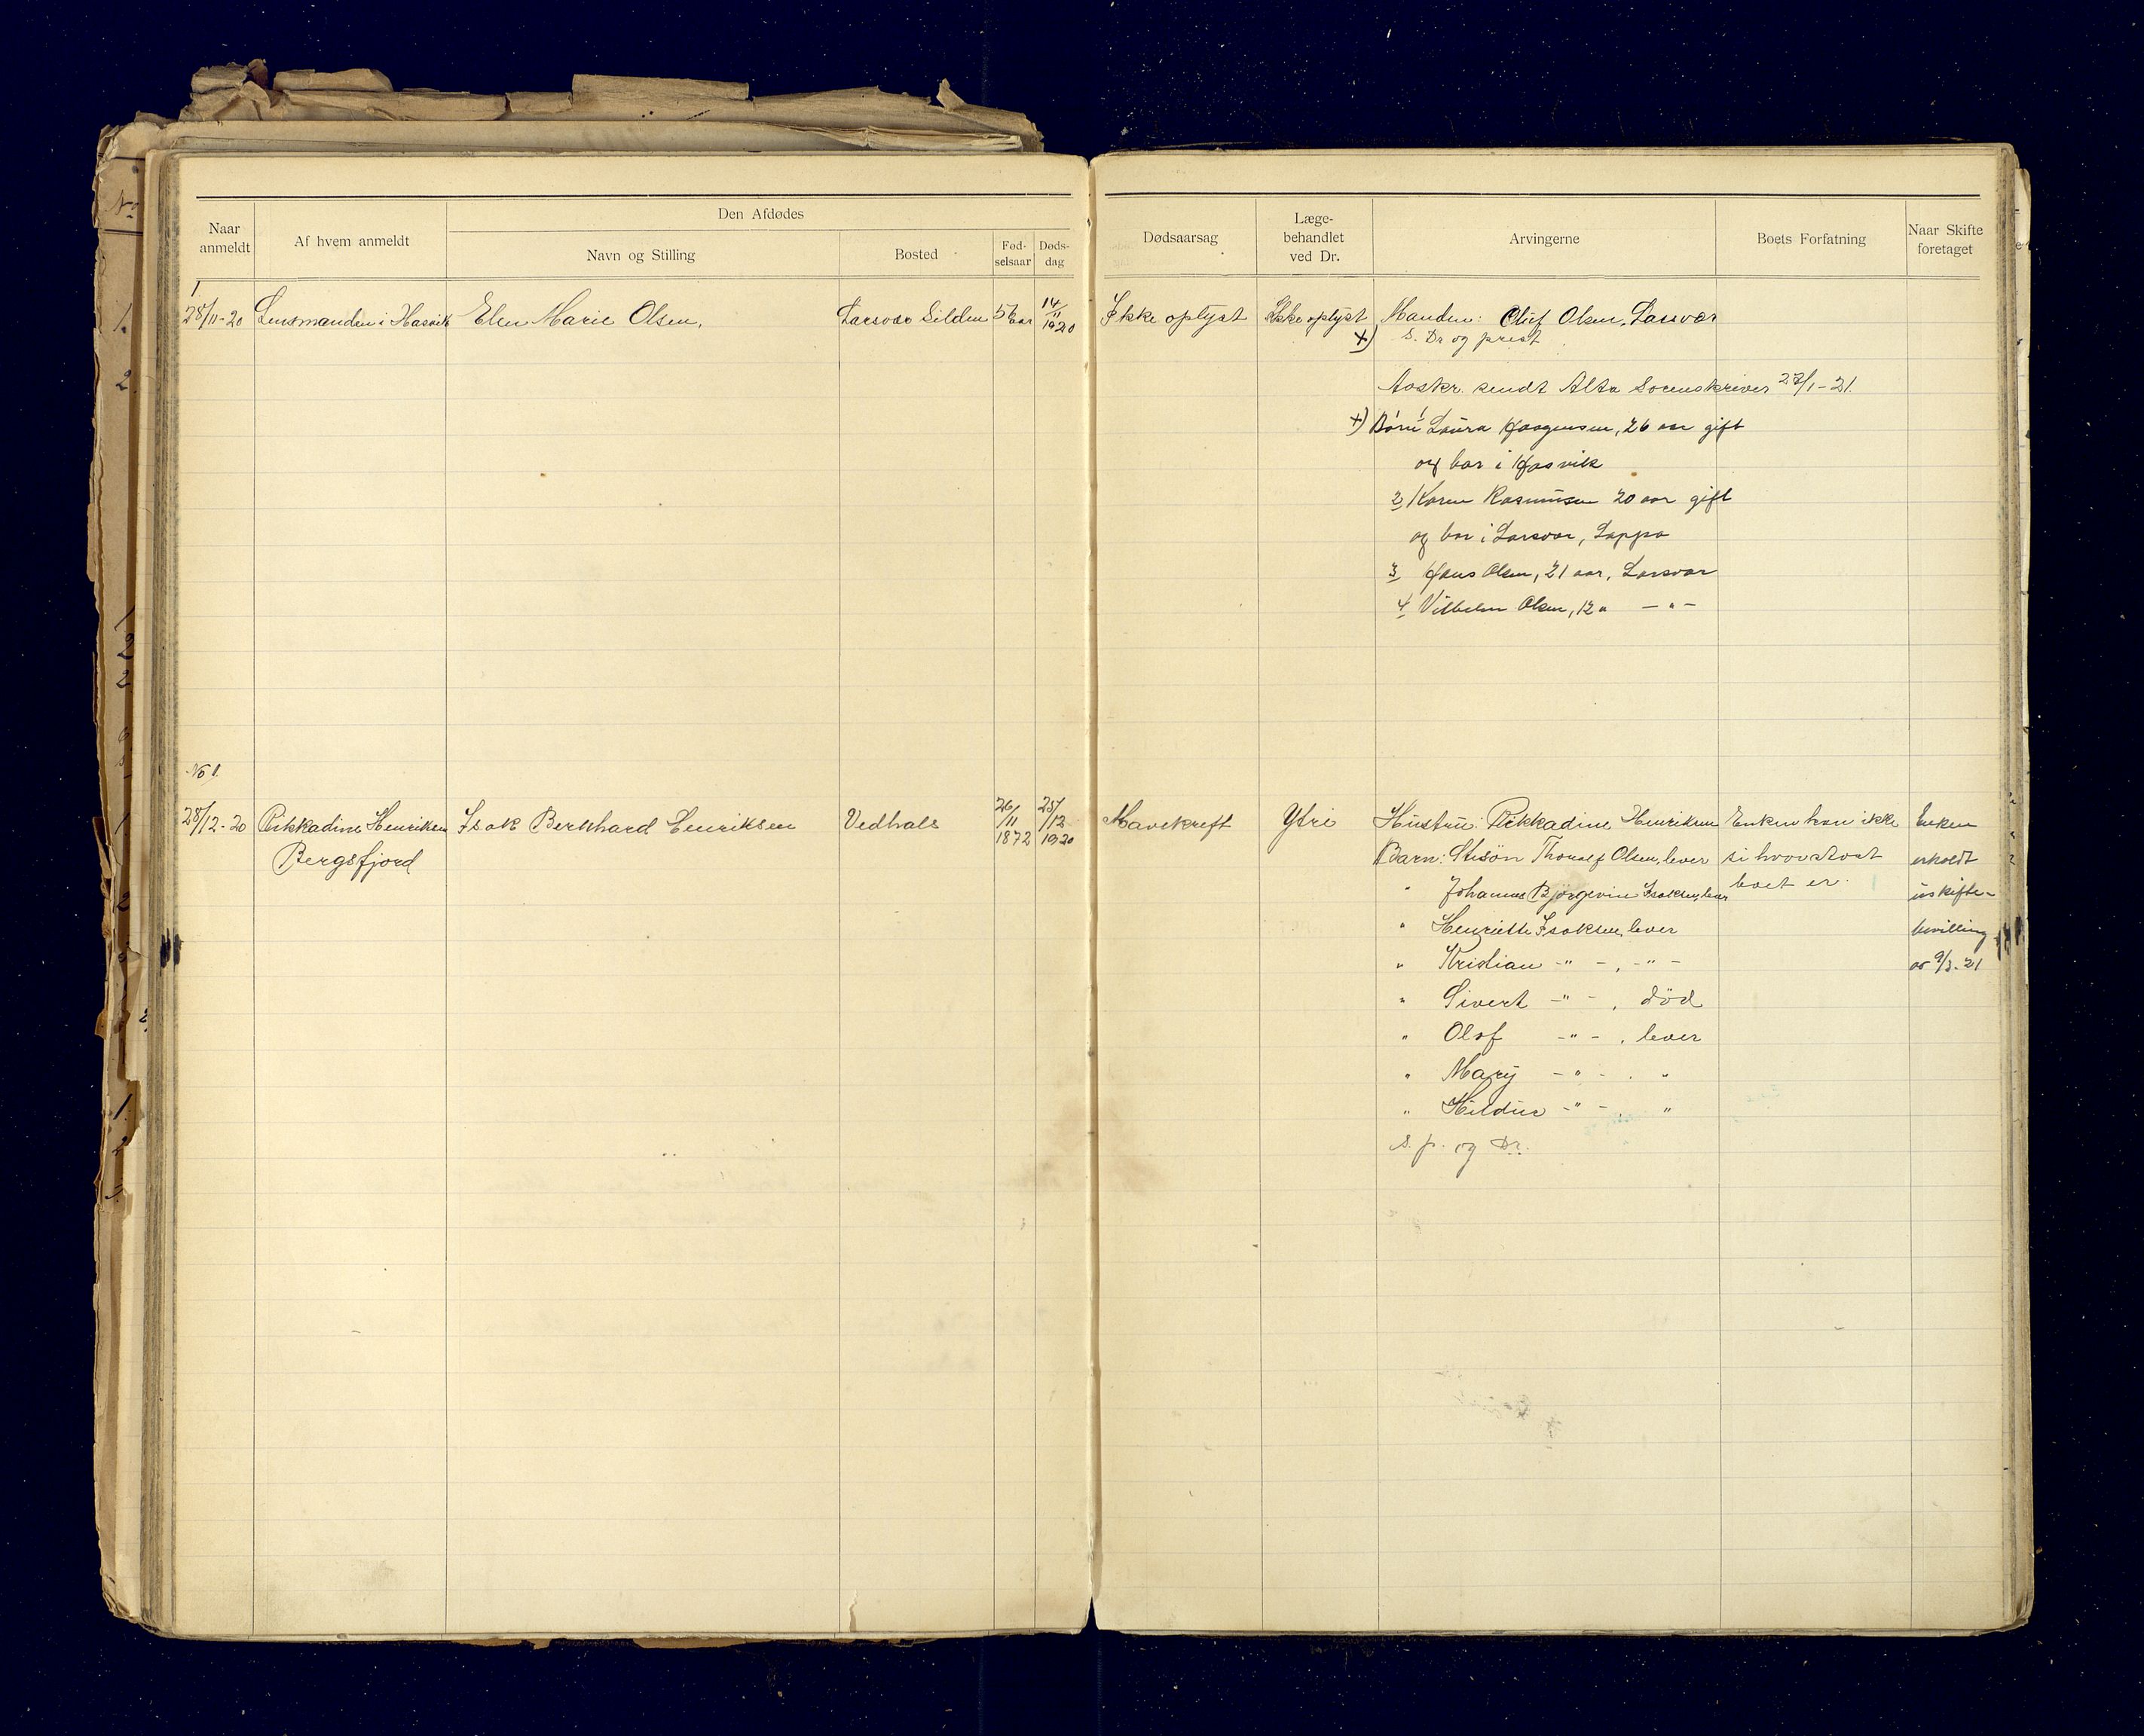 Naar anmeldt
Af hvem anmeldt
Den Afdødes
Navn og Stilling
Bosted
Fød-
selsaar
Døds-
dag
Dødsaarsag
Læge-
behandlet
ved Dr.
Arvingerne
Boets Forfatning
Naar Skifte
foretaget
1
28/11-20 Lensmanden i Hasvik Elen Marie Olsen, Larsvær Silden 56 aar 14/11 1920 Ikke oplyst Ikke oplyst Manden: Oluf Olsen, Larsvær
+) S. Dr og prest
Avskr. sendt Alta Sorenskriver 27/1-21.
+) Børn 1 Laura Haagensen, 26 aar gift
og bor i Hasvik
2 Karen Rasmusen 20 aar gift
og bor i Larsvær, Loppa
3 Hans Olsen, 21 aar, Larsvær
4 Vilhelm Olsen, 12 " — " —
No 1.
28/12-20 Rikkadine Henriksen Isak Bernhard Henriksen Vedhals 26/11 1872 25/12 1920 Mavekreft Ytri Hustru: Rikkadine Henriksen Enken kan ikke Enken
Bergsfjord Barn: Stesøn Thoralf Olsen, lever si hvor stort erholdt
" Johannes Bjørgevin Isaksen, lever boet er. uskifte-
" Henriette Isaksen, lever bevilling
" Kristian — " —, — " — av 9/3-21
" Sivert — " —, død
" Olaf — " —, lever
" Mary — " —. "
" Hildur — " —. "
S. p. og Dr.